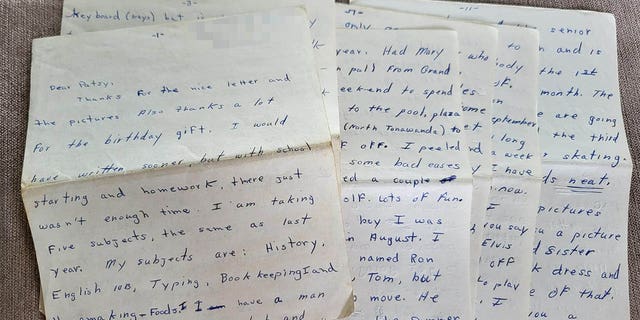 -3-
key board (keys) but i
-1-
Dear Patsy,
Thanks for the nice letter and
the pictures Also thanks a lot
for the birthday gift. I would
have written sooner, but with school
starting and homework, there just
wasn't enough time. I am taking
Five subjects, the same as last
year. My subjects are: History,
English 10B, Typing, Bookkeeping I and
making-Foods. I have a man
and
only
year. Had Mary
pull From Grand
eek-end to spend
to the pool, plaza
(North Tonawanda) to
F off. I peeled
some bad cases
ed a couple of
olF. Lots of Fun.
boy I was
n August. I
named Ron
Tom, but
o move. He
who
ody
oF.
es
ome
et
a week
I have
now.
to
September
long
I
you say
Elvis
off
to play
I
-11-
senior
n and is
the 1st
month. The
e are going
the third
skating.
ds neat.
pictures
u a picture
d Sister
k dress and
e of that.
you a